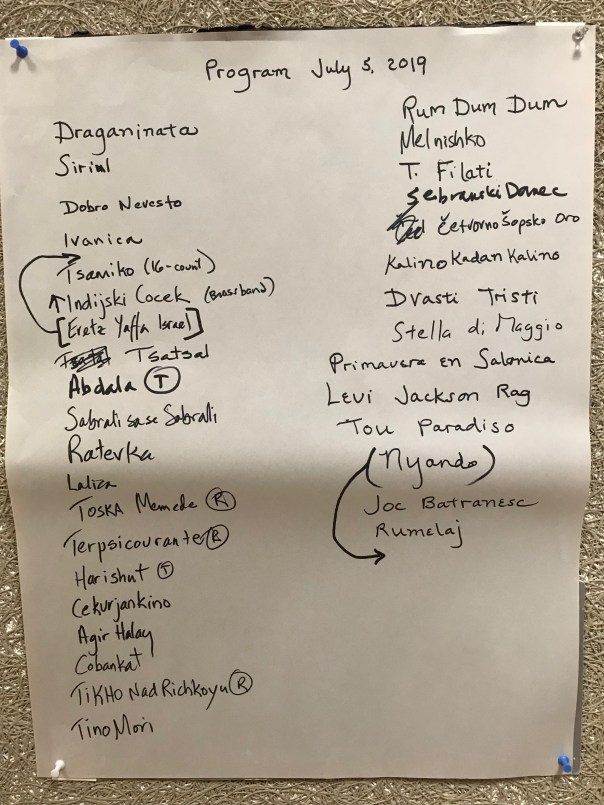 Program July 5, 2019
Draganinata
Sirinl
Dobro Nevesto
Ivanica
Tsamiko (16-count)
↑Indijski Cocek (Brass band)
[Eretz Yaffa Israel]
Tsatsal
Abdala Ⓣ
Sabrali sase Sabralli
Ratevka
Laliza
Toska Memede Ⓡ
Terpsicourante Ⓡ
Harishut Ⓣ
Cekurjankino
Agir Halay
Cobankat
TiKHo Nad Richkoyu Ⓡ
Tino Mori
Rum Dum Dum
Melnishko
T. Filati
Sebranski Danec
Četvorno Šopsko Oro
Kalino Kadan Kalino
Dvasti Tristi
Stella di Maggio
Primavera en Salonica
Levi Jackson Rag
Tou Paradiso
(Nyando)
Joc Batranesc
Rumelaj